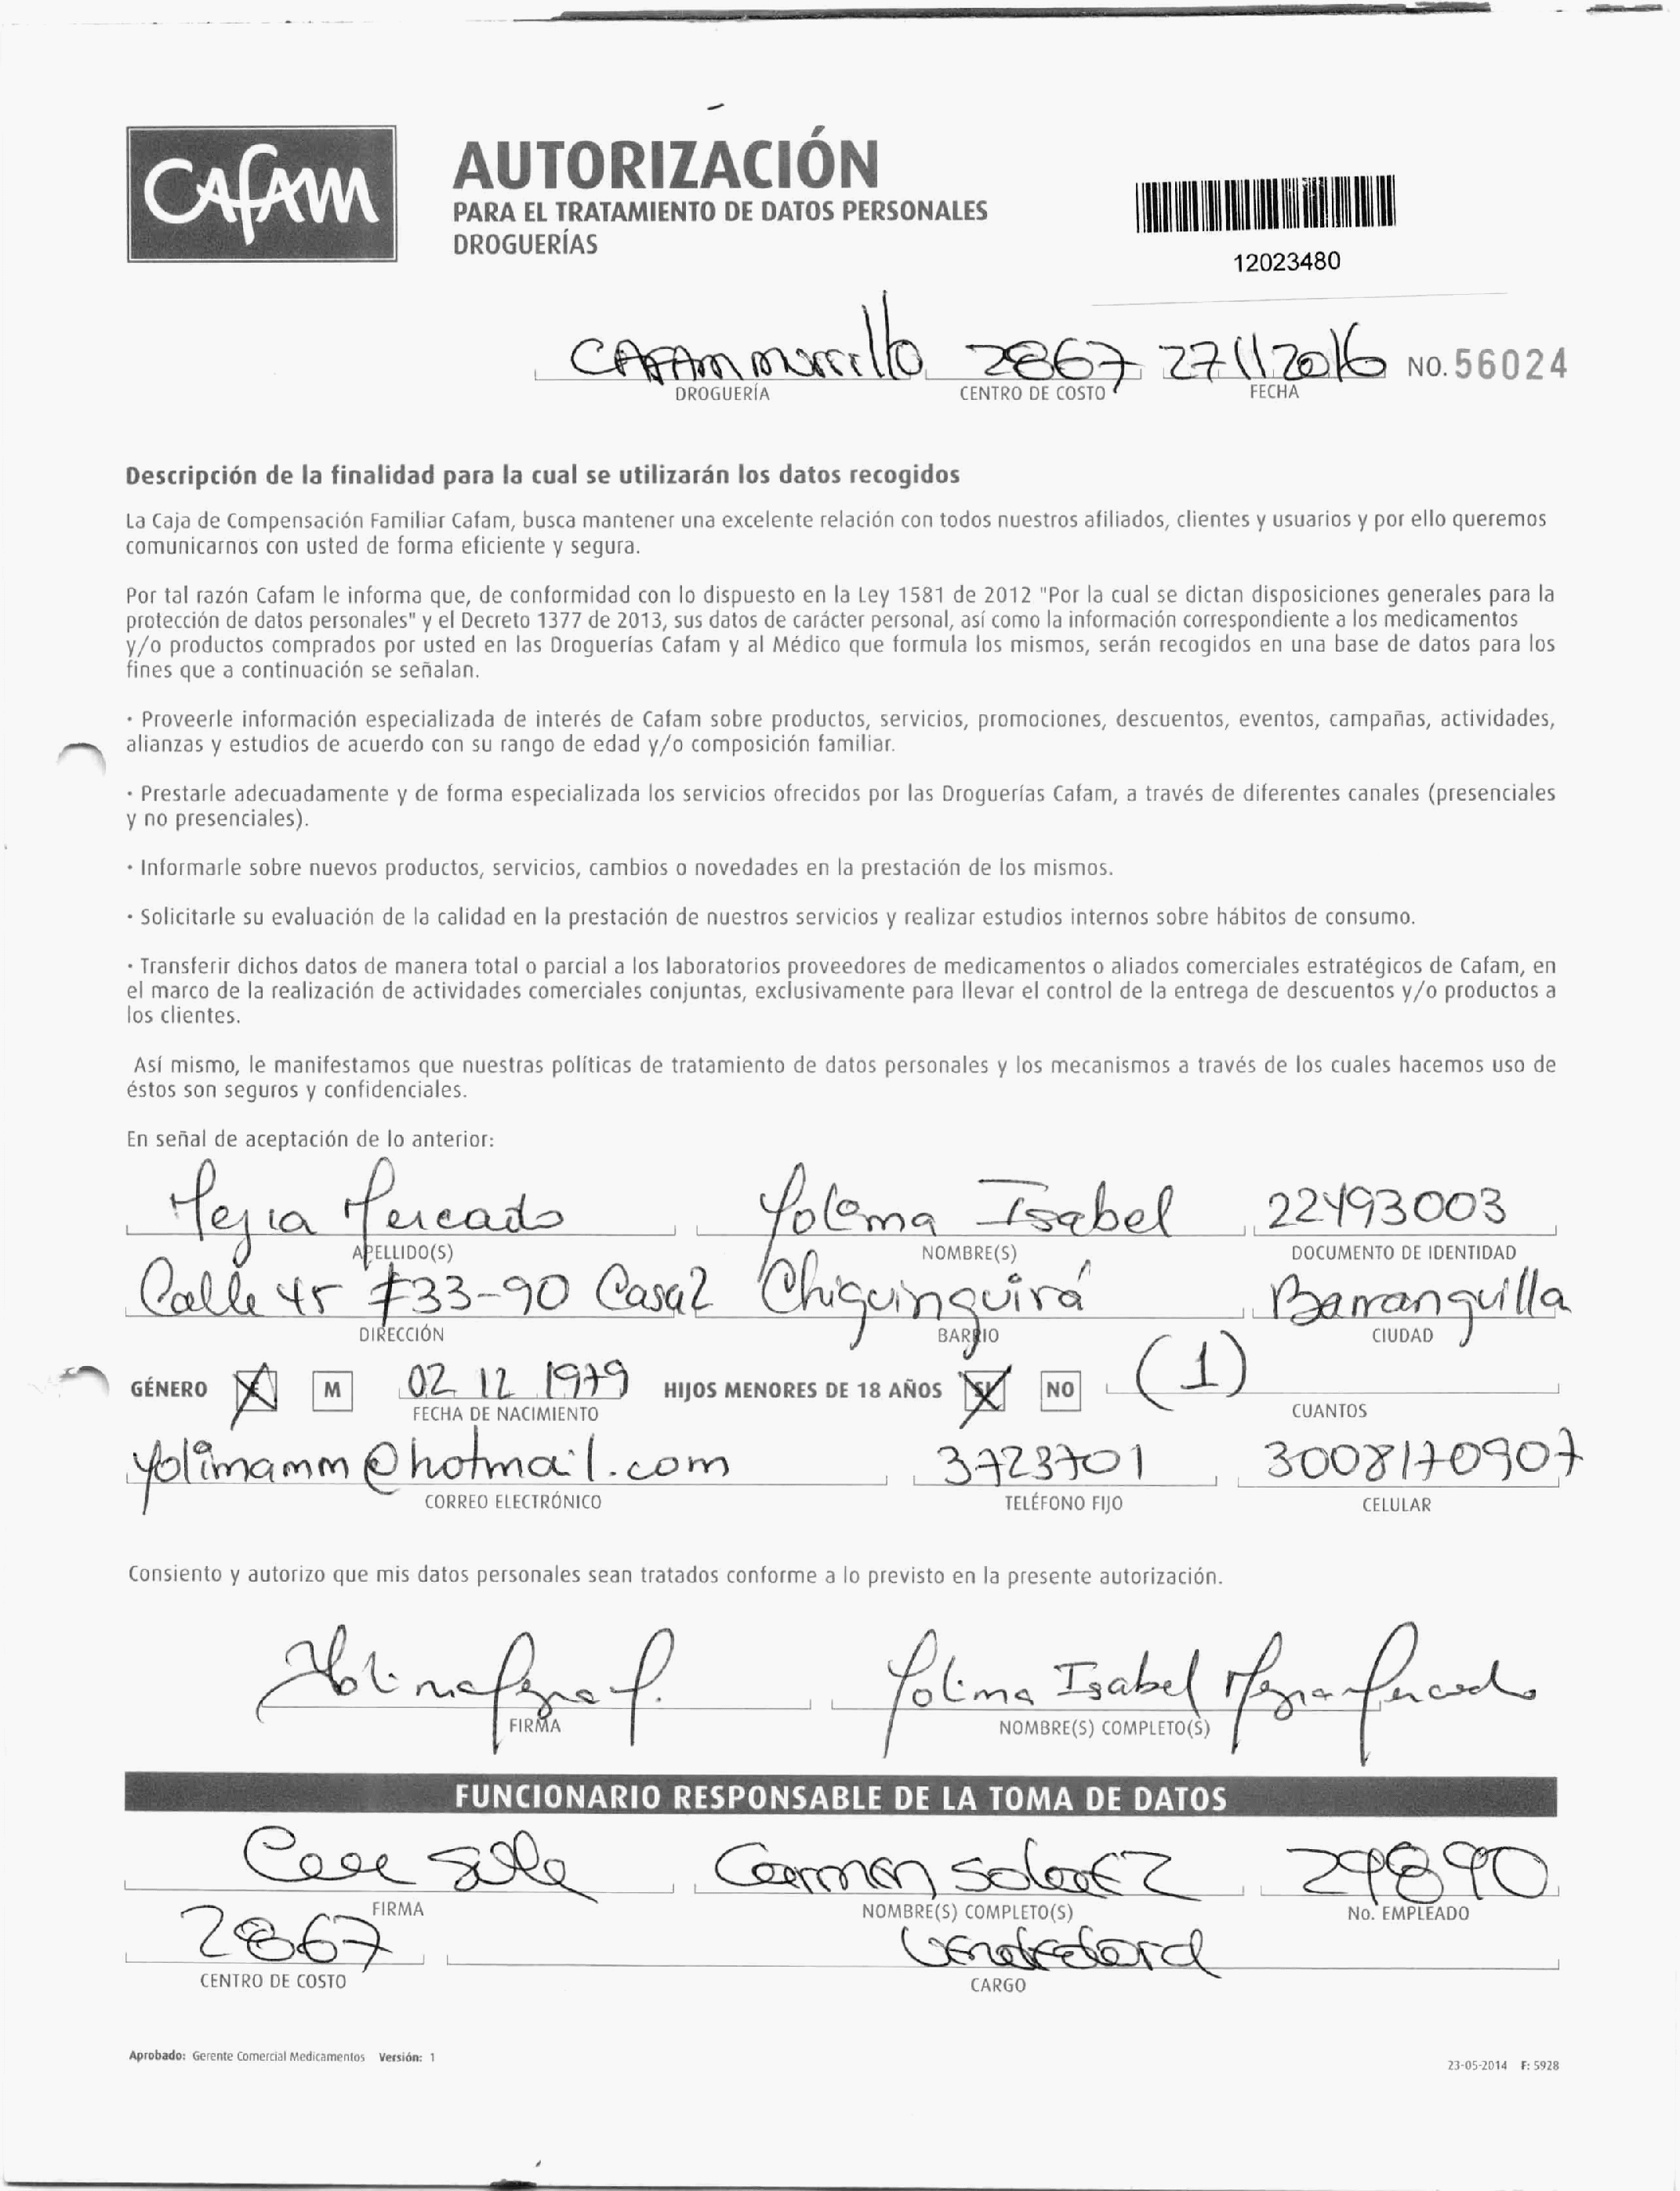 CAFAM
AUTORIZACIÓN
PARA EL TRATAMIENTO DE DATOS PERSONALES
DROGUERÍAS
12023480
CAFAM murillo 2867 27 11 2016 NO. 56024
DROGUERÍA CENTRO DE COSTO FECHA
Descripción de la finalidad para la cual se utilizarán los datos recogidos
La Caja de Compensación Familiar Cafam, busca mantener una excelente relación con todos nuestros afiliados, clientes y usuarios y por ello queremos
comunicarnos con usted de forma eficiente y segura.
Por tal razón Cafam le informa que, de conformidad con lo dispuesto en la Ley 1581 de 2012 "Por la cual se dictan disposiciones generales para la
protección de datos personales" y el Decreto 1377 de 2013, sus datos de carácter personal, así como la información correspondiente a los medicamentos
y/o productos comprados por usted en las Droguerías Cafam y al Médico que formula los mismos, serán recogidos en una base de datos para los
fines que a continuación se señalan.
· Proveerle información especializada de interés de Cafam sobre productos, servicios, promociones, descuentos, eventos, campañas, actividades,
alianzas y estudios de acuerdo con su rango de edad y/o composición familiar.
· Prestarle adecuadamente y de forma especializada los servicios ofrecidos por las Droguerías Cafam, a través de diferentes canales (presenciales
y no presenciales).
· Informarle sobre nuevos productos, servicios, cambios o novedades en la prestación de los mismos.
· Solicitarle su evaluación de la calidad en la prestación de nuestros servicios y realizar estudios internos sobre hábitos de consumo.
· Transferir dichos datos de manera total o parcial a los laboratorios proveedores de medicamentos o aliados comerciales estratégicos de Cafam, en
el marco de la realización de actividades comerciales conjuntas, exclusivamente para llevar el control de la entrega de descuentos y/o productos a
los clientes.
Así mismo, le manifestamos que nuestras políticas de tratamiento de datos personales y los mecanismos a través de los cuales hacemos uso de
éstos son seguros y confidenciales.
En señal de aceptación de lo anterior:
Mejia Mercado Yolima Isabel 22493003
APELLIDO(S) NOMBRE(S) DOCUMENTO DE IDENTIDAD
Calle 45 #33-90 Casa2 Chiquinquirá Barranquilla
DIRECCIÓN BARRIO CIUDAD
GÉNERO F M 02 12 1979 HIJOS MENORES DE 18 AÑOS SI NO (1)
FECHA DE NACIMIENTO CUANTOS
yolimamm@hotmail.com 3723701 3008170907
CORREO ELECTRÓNICO TELÉFONO FIJO CELULAR
Consiento y autorizo que mis datos personales sean tratados conforme a lo previsto en la presente autorización.
Yolima Mejia M. Yolima Isabel Mejia Mercado
FIRMA NOMBRE(S) COMPLETO(S)
FUNCIONARIO RESPONSABLE DE LA TOMA DE DATOS
Carmen 29890
FIRMA NOMBRE(S) COMPLETO(S) No. EMPLEADO
2867
CENTRO DE COSTO CARGO
Aprobado: Gerente Comercial Medicamentos Versión: 1
23-05-2014 F: 5928